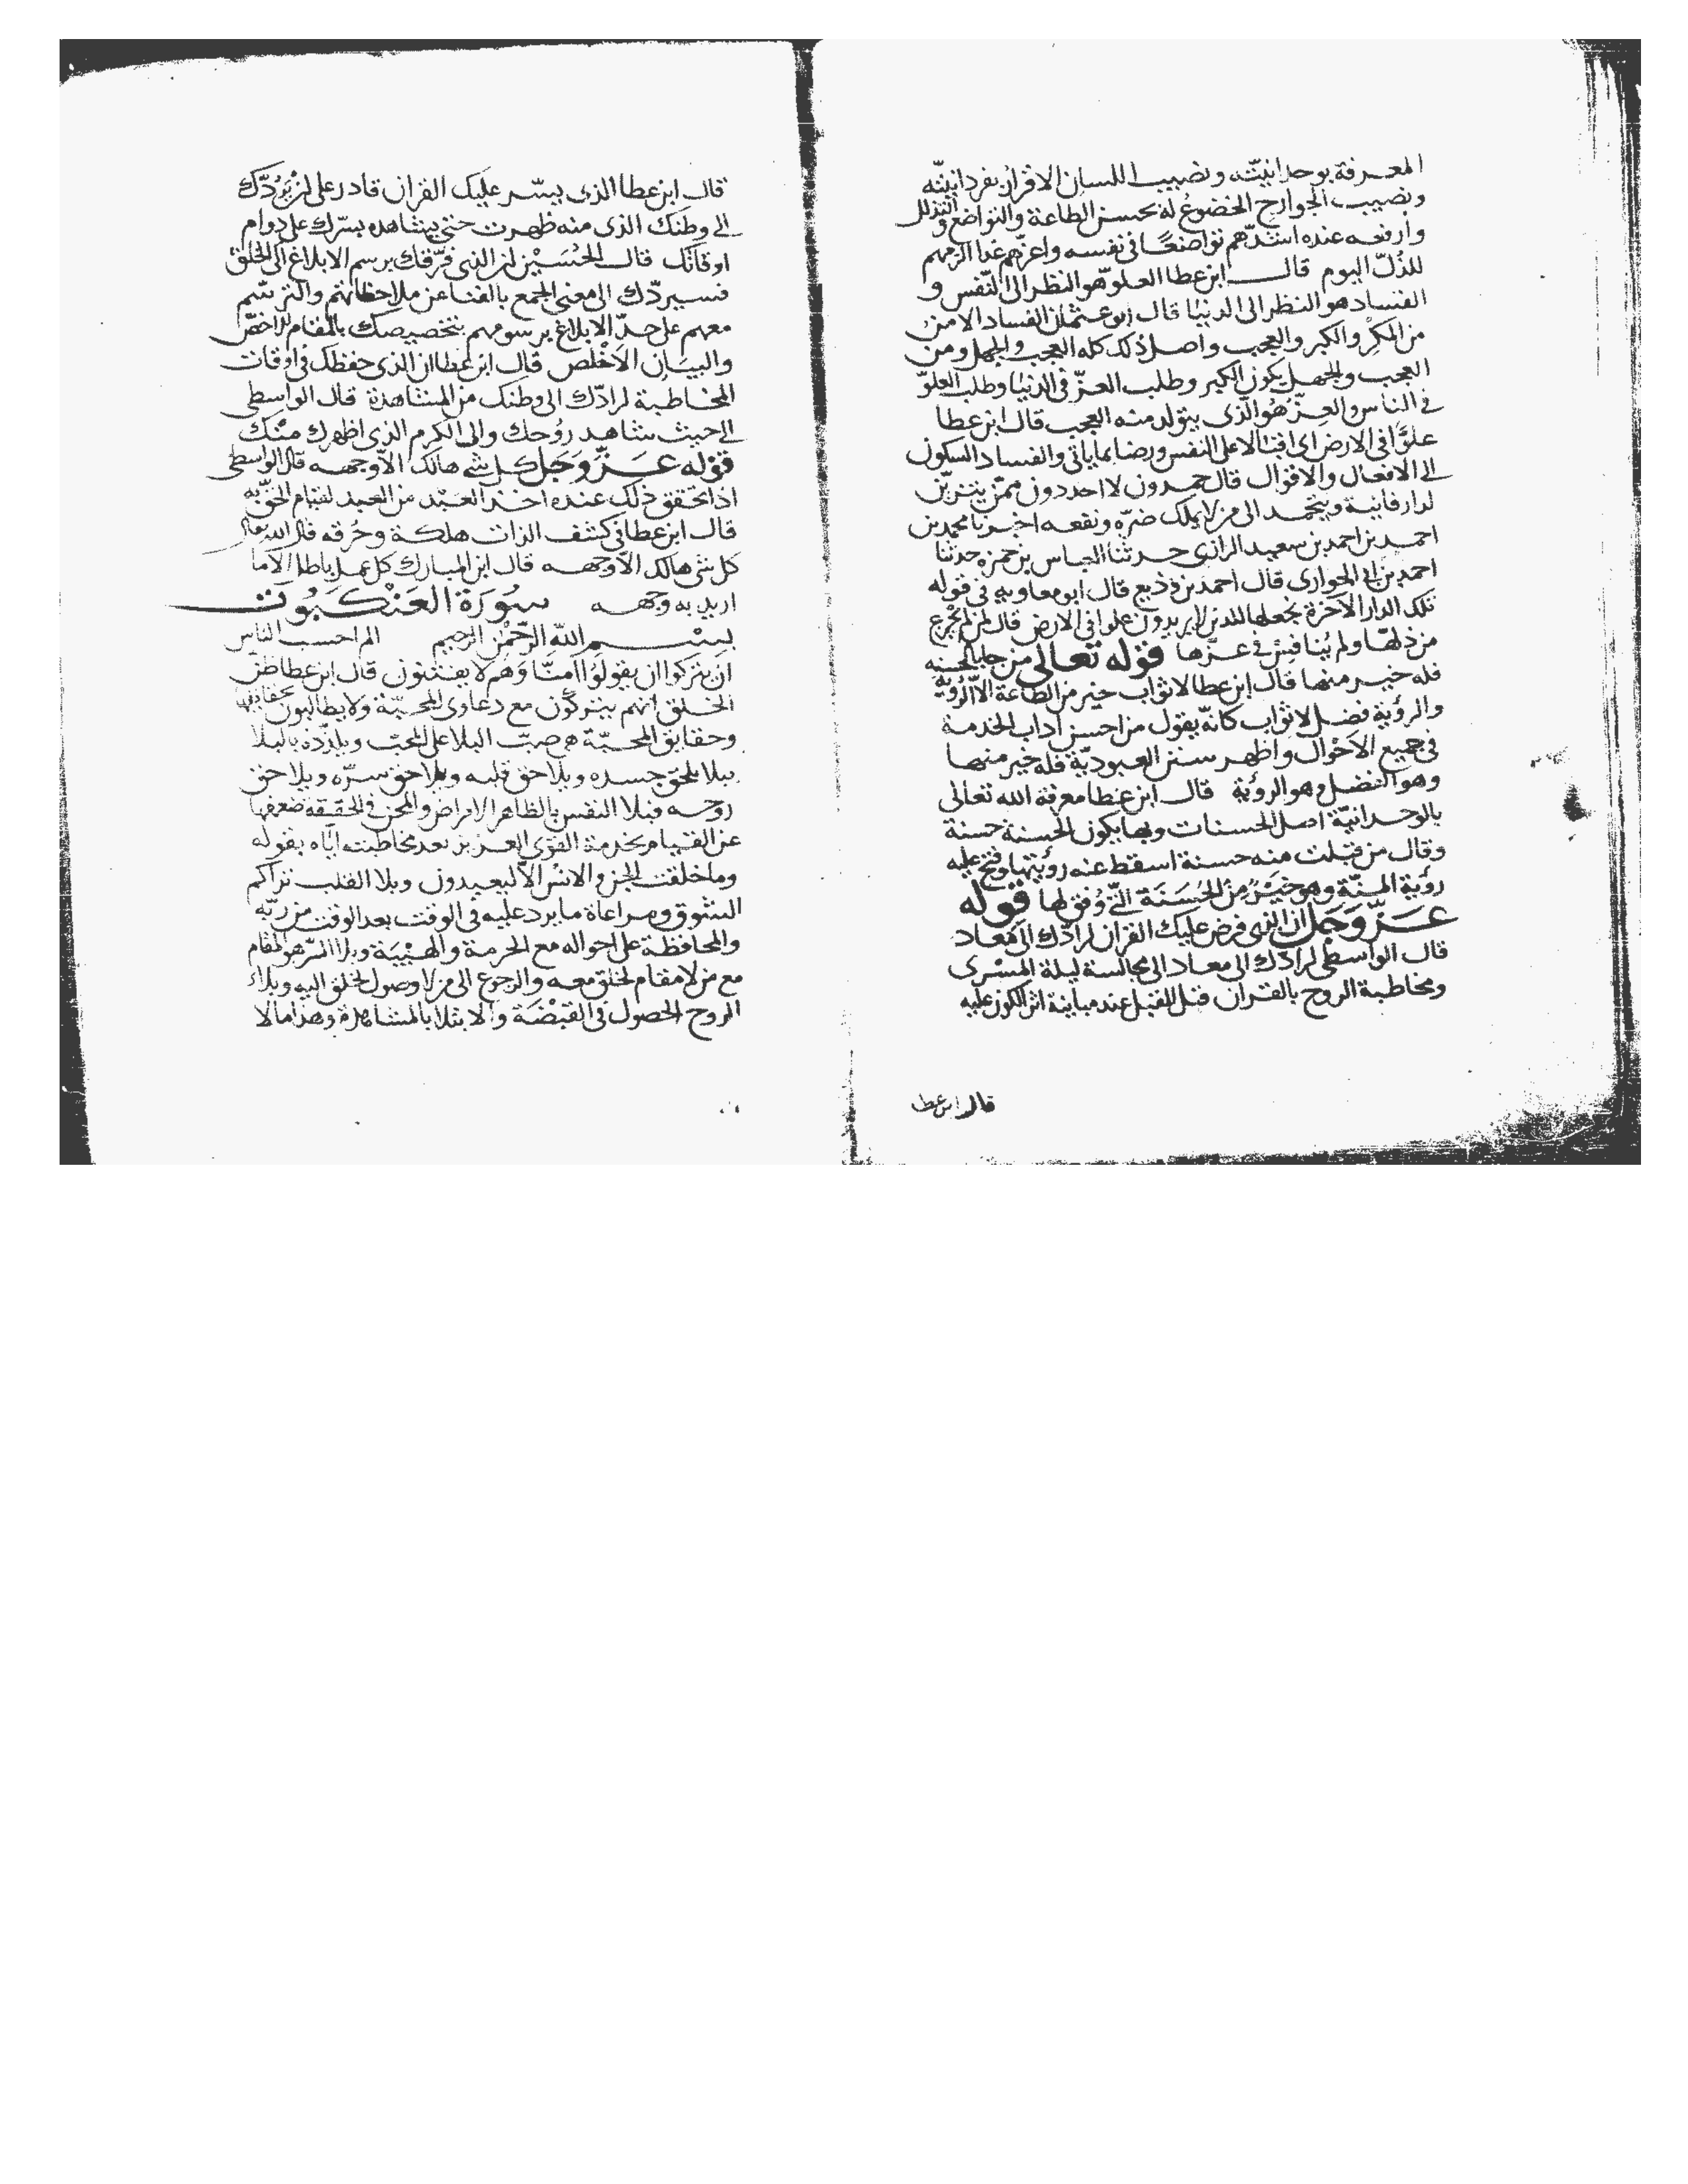 المعرفة بوحدانيته ونصيب اللسان الاقرار بفردانيته
ونصيب الجوارح الخضوع له بحسن الطاعة والتواضع والتذلل
وارفعه عنده اشدهم تواضعًا فى نفسه واعزهم غدا الزمهم
للذُلّ اليوم قال ابن عطا العلو هو النظر الى النّفس و
الفساد هو النظر الى الدنيا قال ابو عثمان الفساد الامن
من المكر والكبر والعجب واصل ذلك كله العجب والجهل ومن
العجب والجهل يكون الكبر وطلب العزّ فى الدنيا وطلب العلوّ
فى الناس والعِزّ هُو الّذى يتولد منه العجب قال ابن عطا
علوًّا فى الارض اى اقبالا على النفس ورضا بما ياتى والفساد السكون
الى الافعال والاقوال قال حمدون لا احد دون ممّن يتزيّن
لدار فانية ويتحمد الى من لا يملك ضرّه ونفعه اخبرنا محمد بن
احمد بن احمد بن سعيد الرازى حدثنا العباس بن حمزه حدثنا
احمد بن ابى الحوارى قال احمد بن وديع قال ابو معاويه فى قوله
تلك الدار الآخرة نجعلها للذين لا يريدون علوا فى الارض قال لمن لم يجزع
من ذلها ولم يُنافِسْ فى عزّها قوله تعالى من جا بالحسنه
فله خير منها قال ابن عطا لا ثواب خير من الطاعة الا الرؤية
والرؤية فضل لا ثواب كانّه يقول من احسن اداب الخدمة
فى جميع الاَحْوال واظهر سنن العبوديّة فله خير منها
وهو التفضل وهو الرؤية قال ابن عطا معرفة الله تعالى
بالوحدانيّة اصل الحسنات وبها يكون الحسنة حسنة
وقال من قبلت منه حسنة اسقط عنه رؤيتها وفتح عليه
رؤية المنّة وهو خَيْرٌ مِن الحُسَنَة الّتى وُفق لها قوله
عزّ وَجَل ان الذى فرض عليك القرآن لرادّك الى مَعاد
قال الواسطى لرادّك الى معاد الى مجالسة ليلة المسْرى
ومخاطبة الروح بالقرآن قبل القبل عند مباينة اثر الكون عليه
قال ابن عطا
قال ابن عطا الذى يسّر عليك القران قادر على ان يَرُدّك
الى وطنك الذى منه ظهرت حتى يشاهده بسّرك على دوام
اوقاتك قال الحُسَيْن ان الذى فرّقك برسم الابلاغ الى الخلق
فسيردّك الى معنى الجمع بالفنا عن ملاحظاتهم والترسّم
معهم على حدّ الابلاغ برسومهم بتخصيصك بالمقام الاخصّ
والبيان الاَخْلص قال ابن عطا ان الذى حفظك فى اوقات
المخاطبة لرادّك الى وطنك من المشاهدة قال الواسطى
الى حيث شاهد رُوحك والى الكرم الذى اظهرك منك
قوله عزّ وَجَل كل شى هالك الاّ وجهه قال الواسطى
اذا تحقق ذلك عنده اخذ العبْد من العبد لقيام الحقّ به
قال ابن عطا فى كشف الذات هلكة وحُرقه قال الله تعالى
كل شى هالك الاّ وجهه قال ابن المبارك كل عمل باطل الا ما
اريد به وجهه سُورَة العَنْكَبُوت
بسم الله الرّحمٰن الرحيم الم احسب الناس
ان يتركوا ان يقولوُا آمنّا وَهُم لا يفتنون قال ابن عطا ظن
الخلق انهم يتركون مع دعاوى المحبّة وَلا يطالبون بحقايقها
وحقايق المحبّة هى صبّ البلا على المحبّ وتلذّذه بالبلا
ببلا يلحق جسده وبلا حق قلبه وبلا حق سرّه وبلا حق
روحه فبلا النفس بالظاهر الامراض والمحن فى الحقيقة ضعفها
عن القيام بخدمة القوى العزيز بعد مخاطبته ايّاه بقوله
وما خلقت الجن والانس الاّ ليعبدون وبلا القلب تراكم
الشوق ومراعاة ما يرد عليه فى الوقت بعد الوقت من ربّه
والمحافظة على احواله مع الحرمة والهيْبَة وبلا السّر هو المقام
مع من لا مقام لخلق معه والرجوع الى من لا وصول لخلق اليه وبلاء
الروح الحصول فى القبْضَة والابتلا بالمشاهدة وهذا ما لا